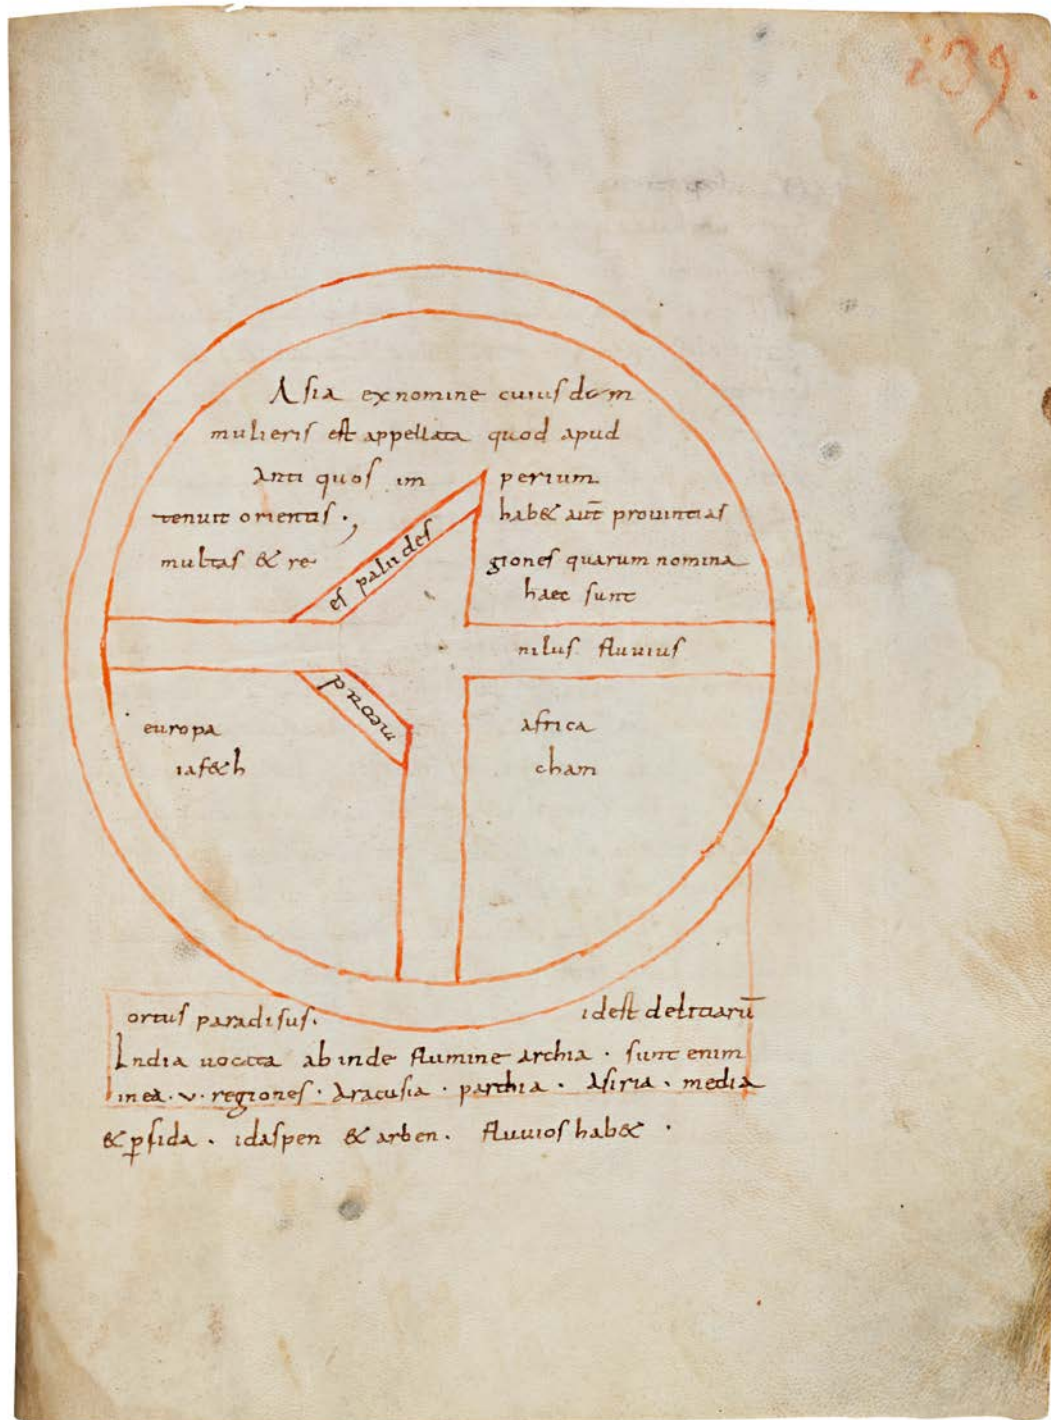 i39.
Asia ex nomine cuiusdem
mulieris est appellata quod apud
Anti quos im perium
tenuit orientis ., hab& aut̅ prouintias
multas & re giones quarum nomina
haec sunt
es paludes
nilus fluuius
meotid
europa africa
iaf&h cham
ortus paradisus. idest delitiaru̅
India uocata ab inde flumine archia . sunt enim
in ea . v . regiones . Aracusia . parthia . Asiria . media
& ꝑsida . idaspen & arben . fluuios hab& .